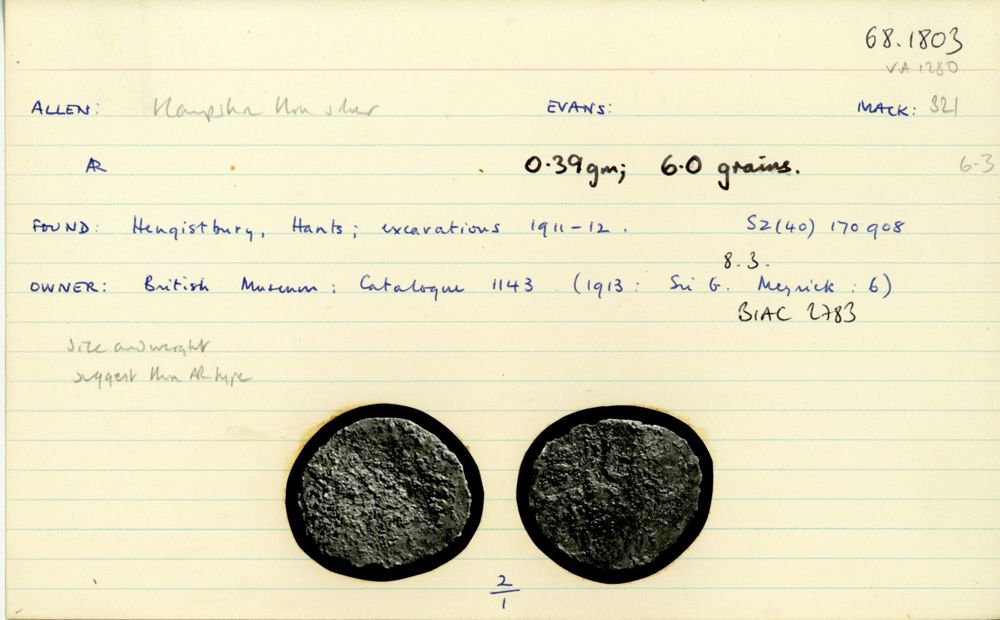 68.1803
VA 1280
ALLEN: Hampshire thin silver EVANS: MACK: 321
AR 0.39gm; 6.0 grains. 6.3
FOUND: Hengistbury, Hants; excavations 1911-12. SZ(40) 170908
8.3.
OWNER: British Museum: Catalogue 1143 (1913: Sir G. Meyrick: 6)
BIAC 2783
Size and weight
suggest thin AR type
2
1